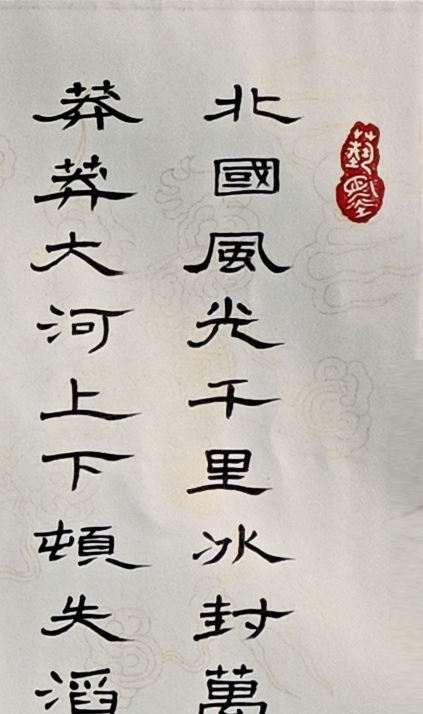 北國風光千里冰封萬
莽莽大河上下頓失滔